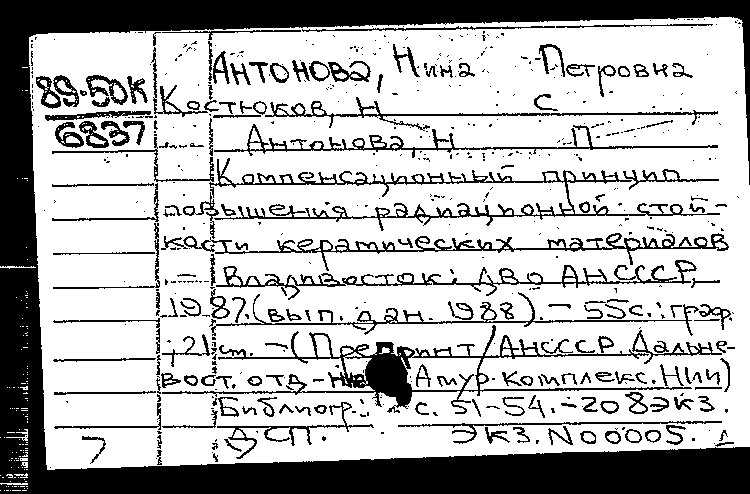 Антонова, Нина Петровна
89-50К
6837
Костюков, Н С
Антонова, Н П
Компенсационный принцип
повышения радиационной стой-
кости керамических материалов
.— Владивосток: ДВО АНСССР,
1987.(вып. дан. 1988).— 55с.:граф.
;21см. —(Препринт/АНСССР. Дальне-
вост. отд-ние Амур. комплекс. НИИ)
Библиогр.: с. 51-54.-208экз.
ДСП. Экз.N00005.